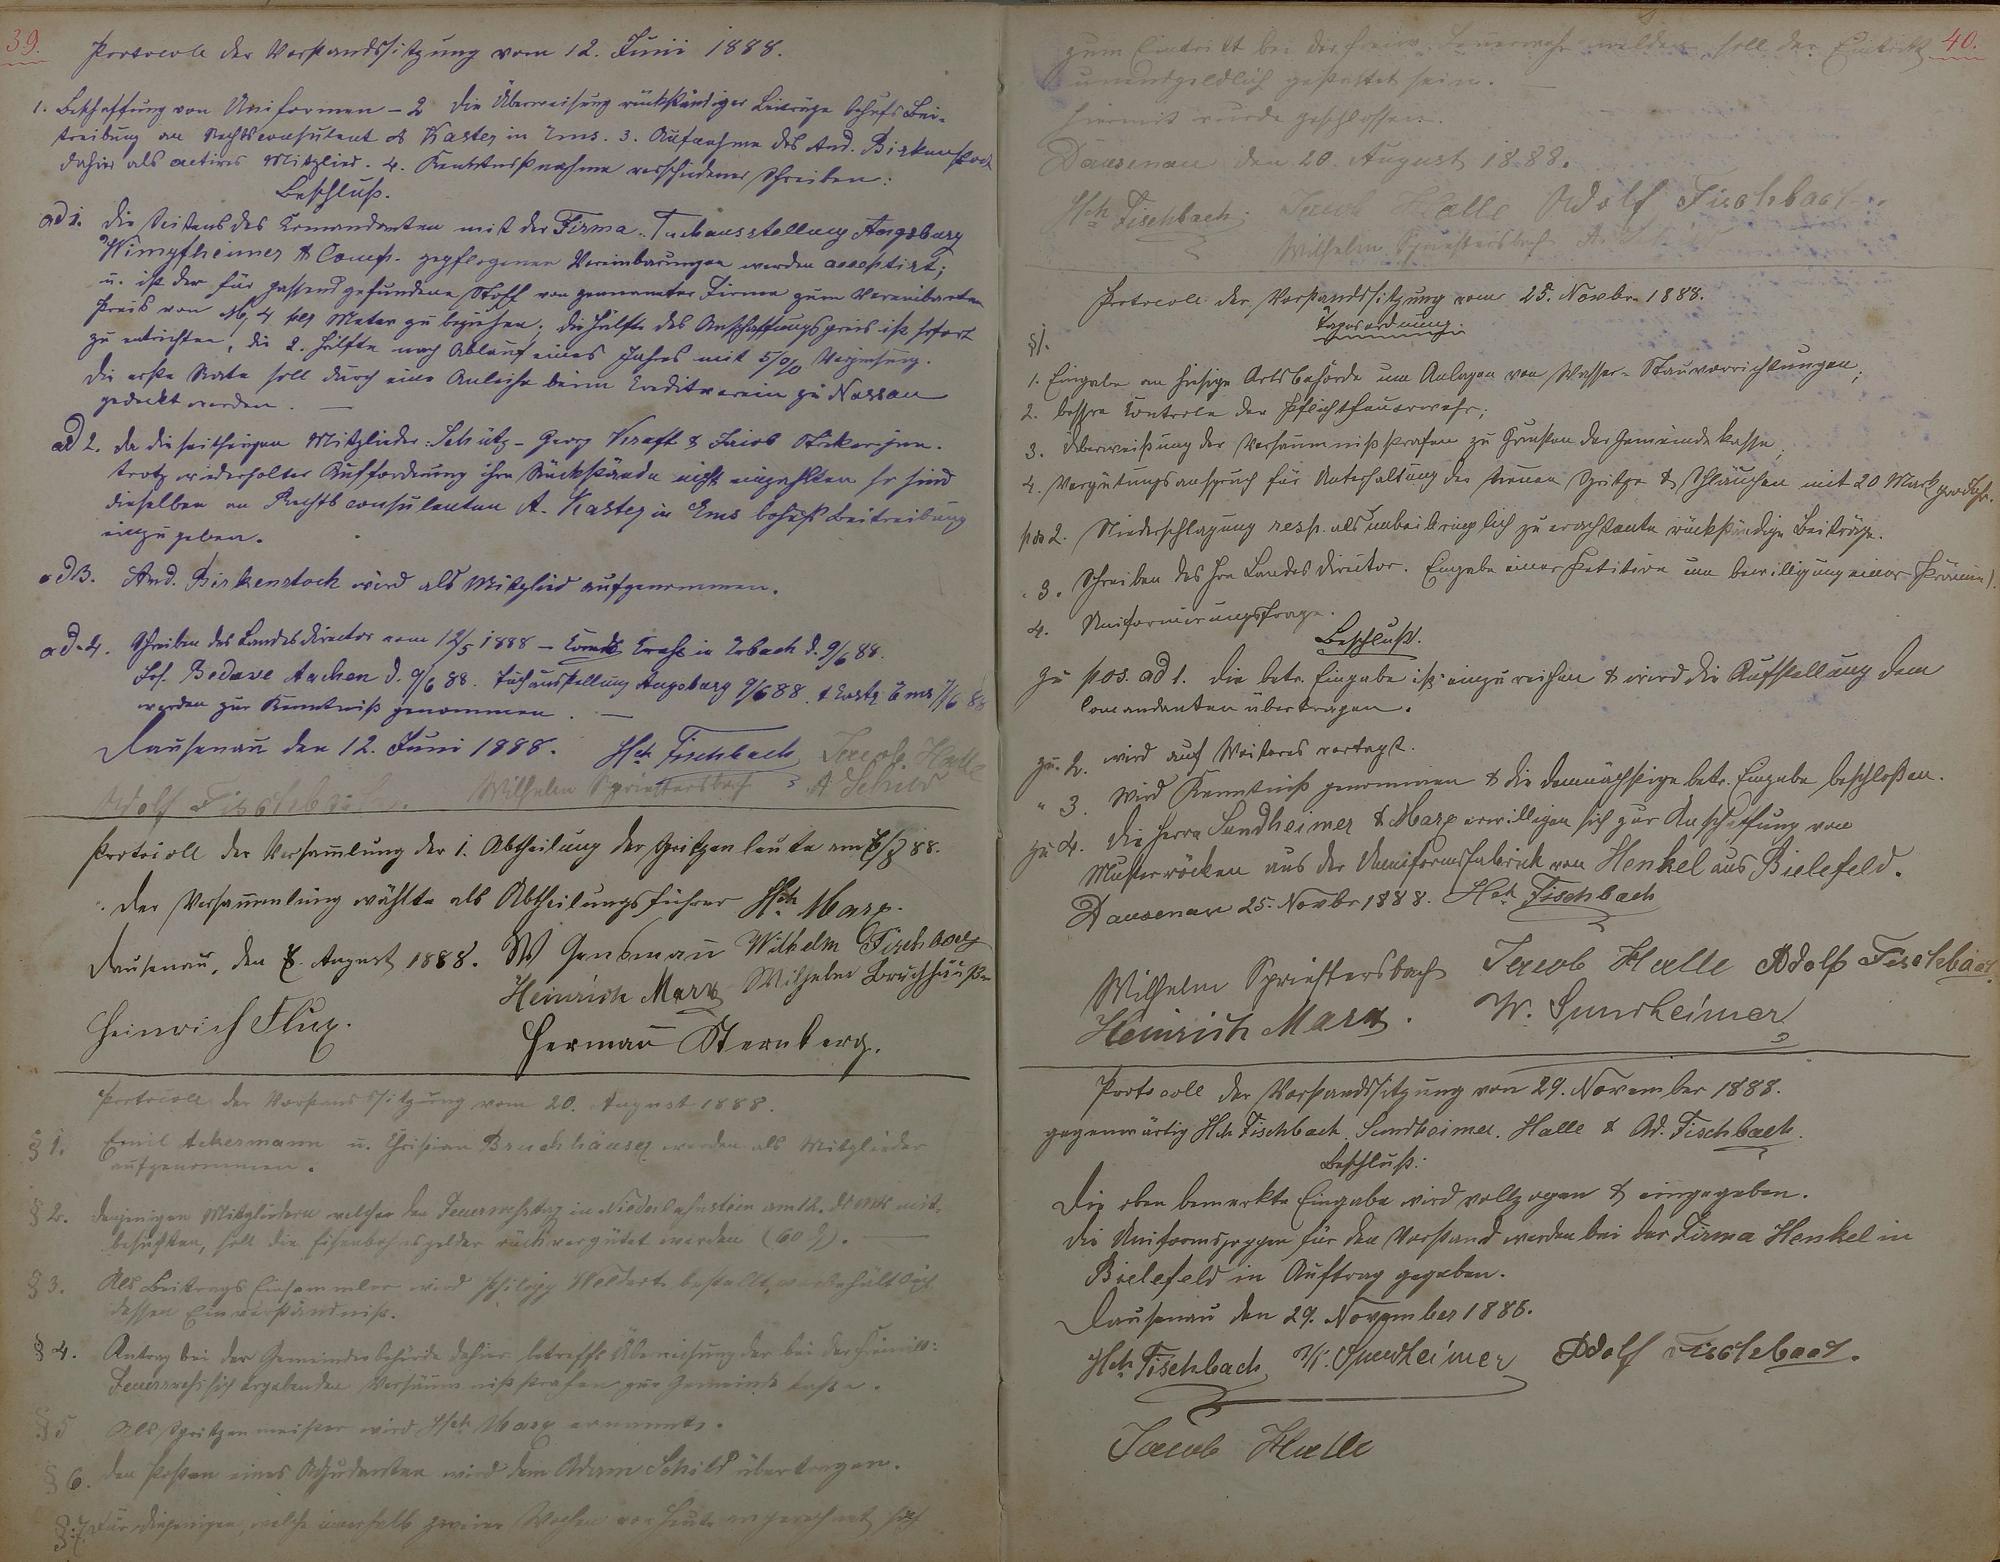 39.
Protocoll der Vorstandssitzung vom 12. Juni 1888.
1. Beschaffung von Uniformen – 2 die Überweisung rückständiger Beiträge behufs Bei-
treibung an Rechtsconsulent A Kaster in Ems. 3. Aufnahme des And. Birkenstock
dahier als actives Mitglied. 4. Kenntnißnahme verschiedener Schreiben:
Beschluß.
ad 1. Die Seitens des Comandanten mit der Firma. Tuchausstellung Augsburg
Wimpfheimer & Comp. gepflogenen Vereinbarungen werden acceptirt;
u. ist der für passend gefundene Stoff von genannter Firma zum vereinbarten
Preis von M, 4 per Meter zu beziehen; die Hälfte des Anschaffungspreis ist sofort
zu entrichten, die 2. Hälfte nach Ablauf eines Jahres mit 5% Verzinsung.
Die erste Rate soll durch eine Anleihe beim Creditverein zu Nassau
gedeckt werden. —
ad 2. Da die seitherigen Mitglieder: Schütz – Georg Kraft & Jacob jun.
trotz wiederholter Aufforderung ihre Rückstände nicht einzahlten so sind
dieselben an Rechtsconsulenten A. Kaster in Ems behufs Beitreibung
einzugeben.
ad 3. And. Birkenstock wird als Mitglied aufgenommen.
ad. 4. Schreiben des Landesdirector vom 12/5 1888 – in Erbach d. 9/6 88.
Aachen d. 9/6 88. Tuchausstellung Augsburg 9/6 88. & Ems 7/6 88
werden zur Kenntniß genommen. —
Dausenau den 12. Juni 1888. Hch Fischbach Jacob Halle
Adolf Fischbach. Wilhelm Spriestersbach A Schild
Protocoll der Versammlung der 1. Abtheilung der Spritzenleute am 8/8 88.
Der Versammlung wählte als Abtheilungsführer Hch Marx.
Dausenau, den 8. August 1888. W Gensmann Wilhelm Fischbach
Heinrich Marx Wilhelm Bruchhäuser
Heinrich Flux. Hermann Sternberg.
Protocoll der Vorstandssitzung vom 20. August 1888.
§ 1. Emil Ackermann u. Christian Bruchhäuser werden als Mitglieder
aufgenommen.
§ 2. Denjenigen Mitgliedern welcher den Feuerwehrtag in Niederlahnstein am 12. mit-
besuchten, soll die Eisenbahngelder rückvergütet werden (60 ₰). —
§ 3. Als Beitrags Einsammler wird Philipp Weldert bestellt, vorbehältlich
dessen Einverständniß.
§ 4. Antrag bei der Gemeindebehörde dahier betreffs Überweisung der bei der Freiwill:
Feuerwehr sich ergebenden Versäumnißstrafen zur Gemeinde Kasse.
§ 5 Als Spritzenmeister wird Hch Marx ernannt.
§ 6. Den Posten eines Adjudanten wird dem Adam Schild übertragen.
§ 7. Für diejenigen, welche innerhalb zweier Wochen von Heute angerechnet sich
40.
zum Eintritt bei der freiw. Feuerwehr melden, soll der Eintritt
unentgeldlich gestattet sein. —
Hiermit wurde geschlossen.
Dausenau den 20. August 1888.
Hch Fischbach Jacob Halle Adolf Fischbach
Wilhelm Spriestersbach A. Schild
Protocoll der Vorstandssitzung vom 25. Novbr. 1888.
Tagesordnung.
§ 1.
1. Eingabe an hiesige Ortsbehörde um Anlagen von Wasser-Stauvorrichtungen;
2. bessre Controle der Pflichtfeuerwehr;
3. Überweisung der Versäumnißstrafen zu Gunsten der Gemeindekasse;
4. Vergütungsanspruch für Unterhaltung der neuen Spritze & Schläuchen mit 20 Mark pro Jahr.
pos 2. Niederschlagung resp. als unbeitringlich zu erachtente rückständige Beiträge.
" 3. Schreiben des Hrn Landesdirector. Eingabe einer Petition um bewilligung einer Prämie).
4. Uniformirungsfrage.
Beschluß.
Zu pos. ad 1. Die betr. Eingabe ist einzureichen & wird die Aufstellung dem
Comandanten übertragen.
zu. 2. wird auf Weiteres vertagt.
" 3. Wird Kenntniß genommen & die demnächstige betr. Eingabe beschloßen.
zu 4. Die Herrn Sundheimer & Marx erwilligen sich zur Anschaffung von
Musterröcken aus der Uniformsfabrick von Henkel aus Bielefeld.
Dausenau 25. Novbr 1888. Hch Fischbach
Wilhelm Spriestersbach Jacob Halle Adolf Fischbach
Heinrich Marx. W. Sundheimer
Protocoll der Vorstandssitzung von 29. November 1888.
gegenwärtig Hch Fischbach, Sundheimer, Halle & Ad. Fischbach.
Beschluß:
Die oben bemerkte Eingabe wird vollzogen & eingegeben.
Die Uniformsjoppen für den Vorstand werden bei der Firma Henkel in
Bielefeld in Auftrag gegeben.
Dausenau den 29. November 1888.
Hch Fischbach W. Sundheimer Adolf Fischbach.
Jacob Halle